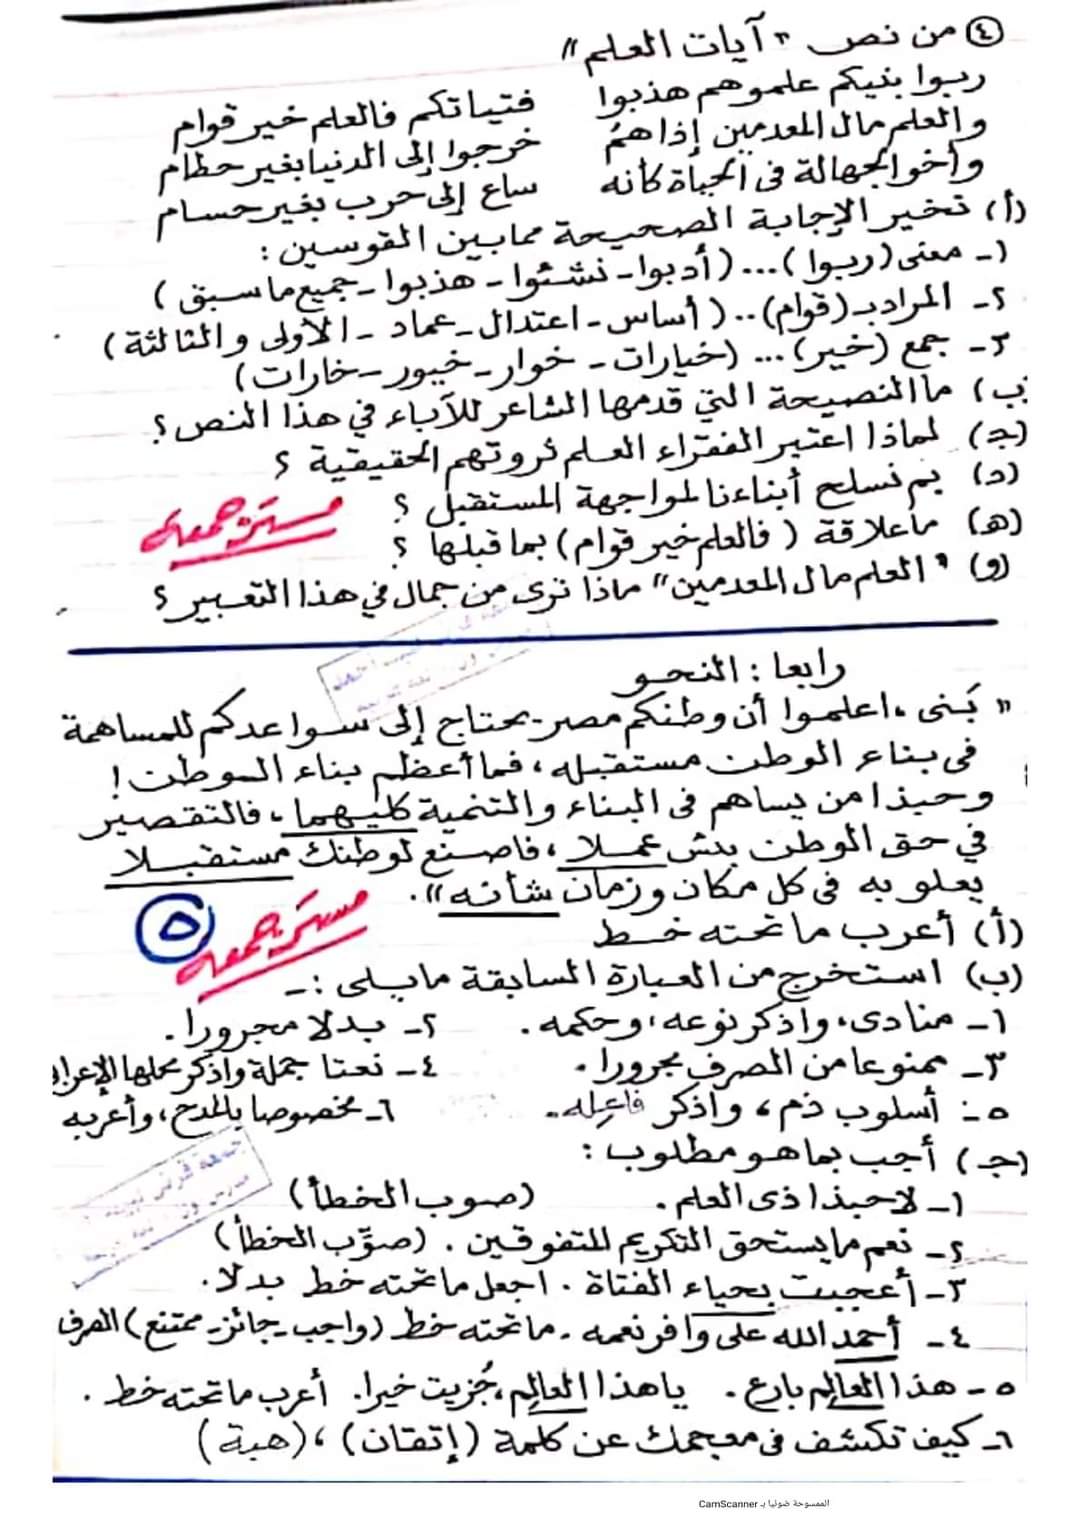 ٤ من نص " آيات العلم "
ربوا بنيكم علموهم هذبوا فتياتكم فالعلم خير قوام
والعلم مال المعدمين إذا همُ خرجوا إلى الدنيا بغير حطام
وأخو الجهالة في الحياة كأنه ساع إلى حرب بغير حسام
(أ) تخير الإجابة الصحيحة مما بين القوسين :
١- معنى (ربوا) ... (أدبوا - نشئوا - هذبوا - جميع ما سبق)
٢- المراد بـ (قوام) .. (أساس - اعتدال - عماد - الأولى والثالثة)
٣- جمع (خير) ... (خيارات - خوار - خيور - خارات)
ب) ما النصيحة التي قدمها الشاعر للآباء في هذا النص ؟
(جـ) لماذا اعتبر الفقراء العلم ثروتهم الحقيقية ؟
(د) بم نسلح أبناءنا لمواجهة المستقبل ؟
(هـ) ما علاقة (فالعلم خير قوام) بما قبلها ؟
مستر جمعه
(و) " العلم مال المعدمين " ماذا ترى من جمال في هذا التعبير ؟
رابعا : النحو
" بَنى ، اعلموا أن وطنكم مصر يحتاج إلى سواعدكم للمساهمة
فى بناء الوطن مستقبله ، فما أعظم بناء الوطن !
وحبذا من يساهم فى البناء والتنمية كليهما ، فالتقصير
في حق الوطن بئس عملا ، فاصنع لوطنك مستقبلا
يعلو به فى كل مكان وزمان شأنه ".
(أ) أعرب ما تحته خط
مستر جمعه
٥
(ب) استخرج من العبارة السابقة ما يلى :-
١- منادى ، واذكر نوعه ، وحكمه . ٢- بدلا مجرورا .
٣- ممنوعا من الصرف مجرورا . ٤- نعتا جملة واذكر محلها الإعراب
٥- أسلوب ذم ، واذكر فاعِله . ٦- مخصوصا بالمدح ، وأعربه
(جـ) أجب بما هو مطلوب :
١- لا حبذا ذى العلم . (صوب الخطأ)
٢- نعم ما يستحق التكريم للتفوقين . (صوِّب الخطأ)
٣- أعجبت بحياء الفتاة . اجعل ما تحته خط بدلا .
٤- أحمد الله على وافر نعمه . ما تحته خط (واجب - جائز - ممتنع) الصرف
٥- هذا العالِم بارع . يا هذا العالِم ، جُزيت خيرا . أعرب ما تحته خط .
٦- كيف تكشف فى معجمك عن كلمة (إتقان) ، (هبة)
الممسوحة ضوئيا بـ CamScanner